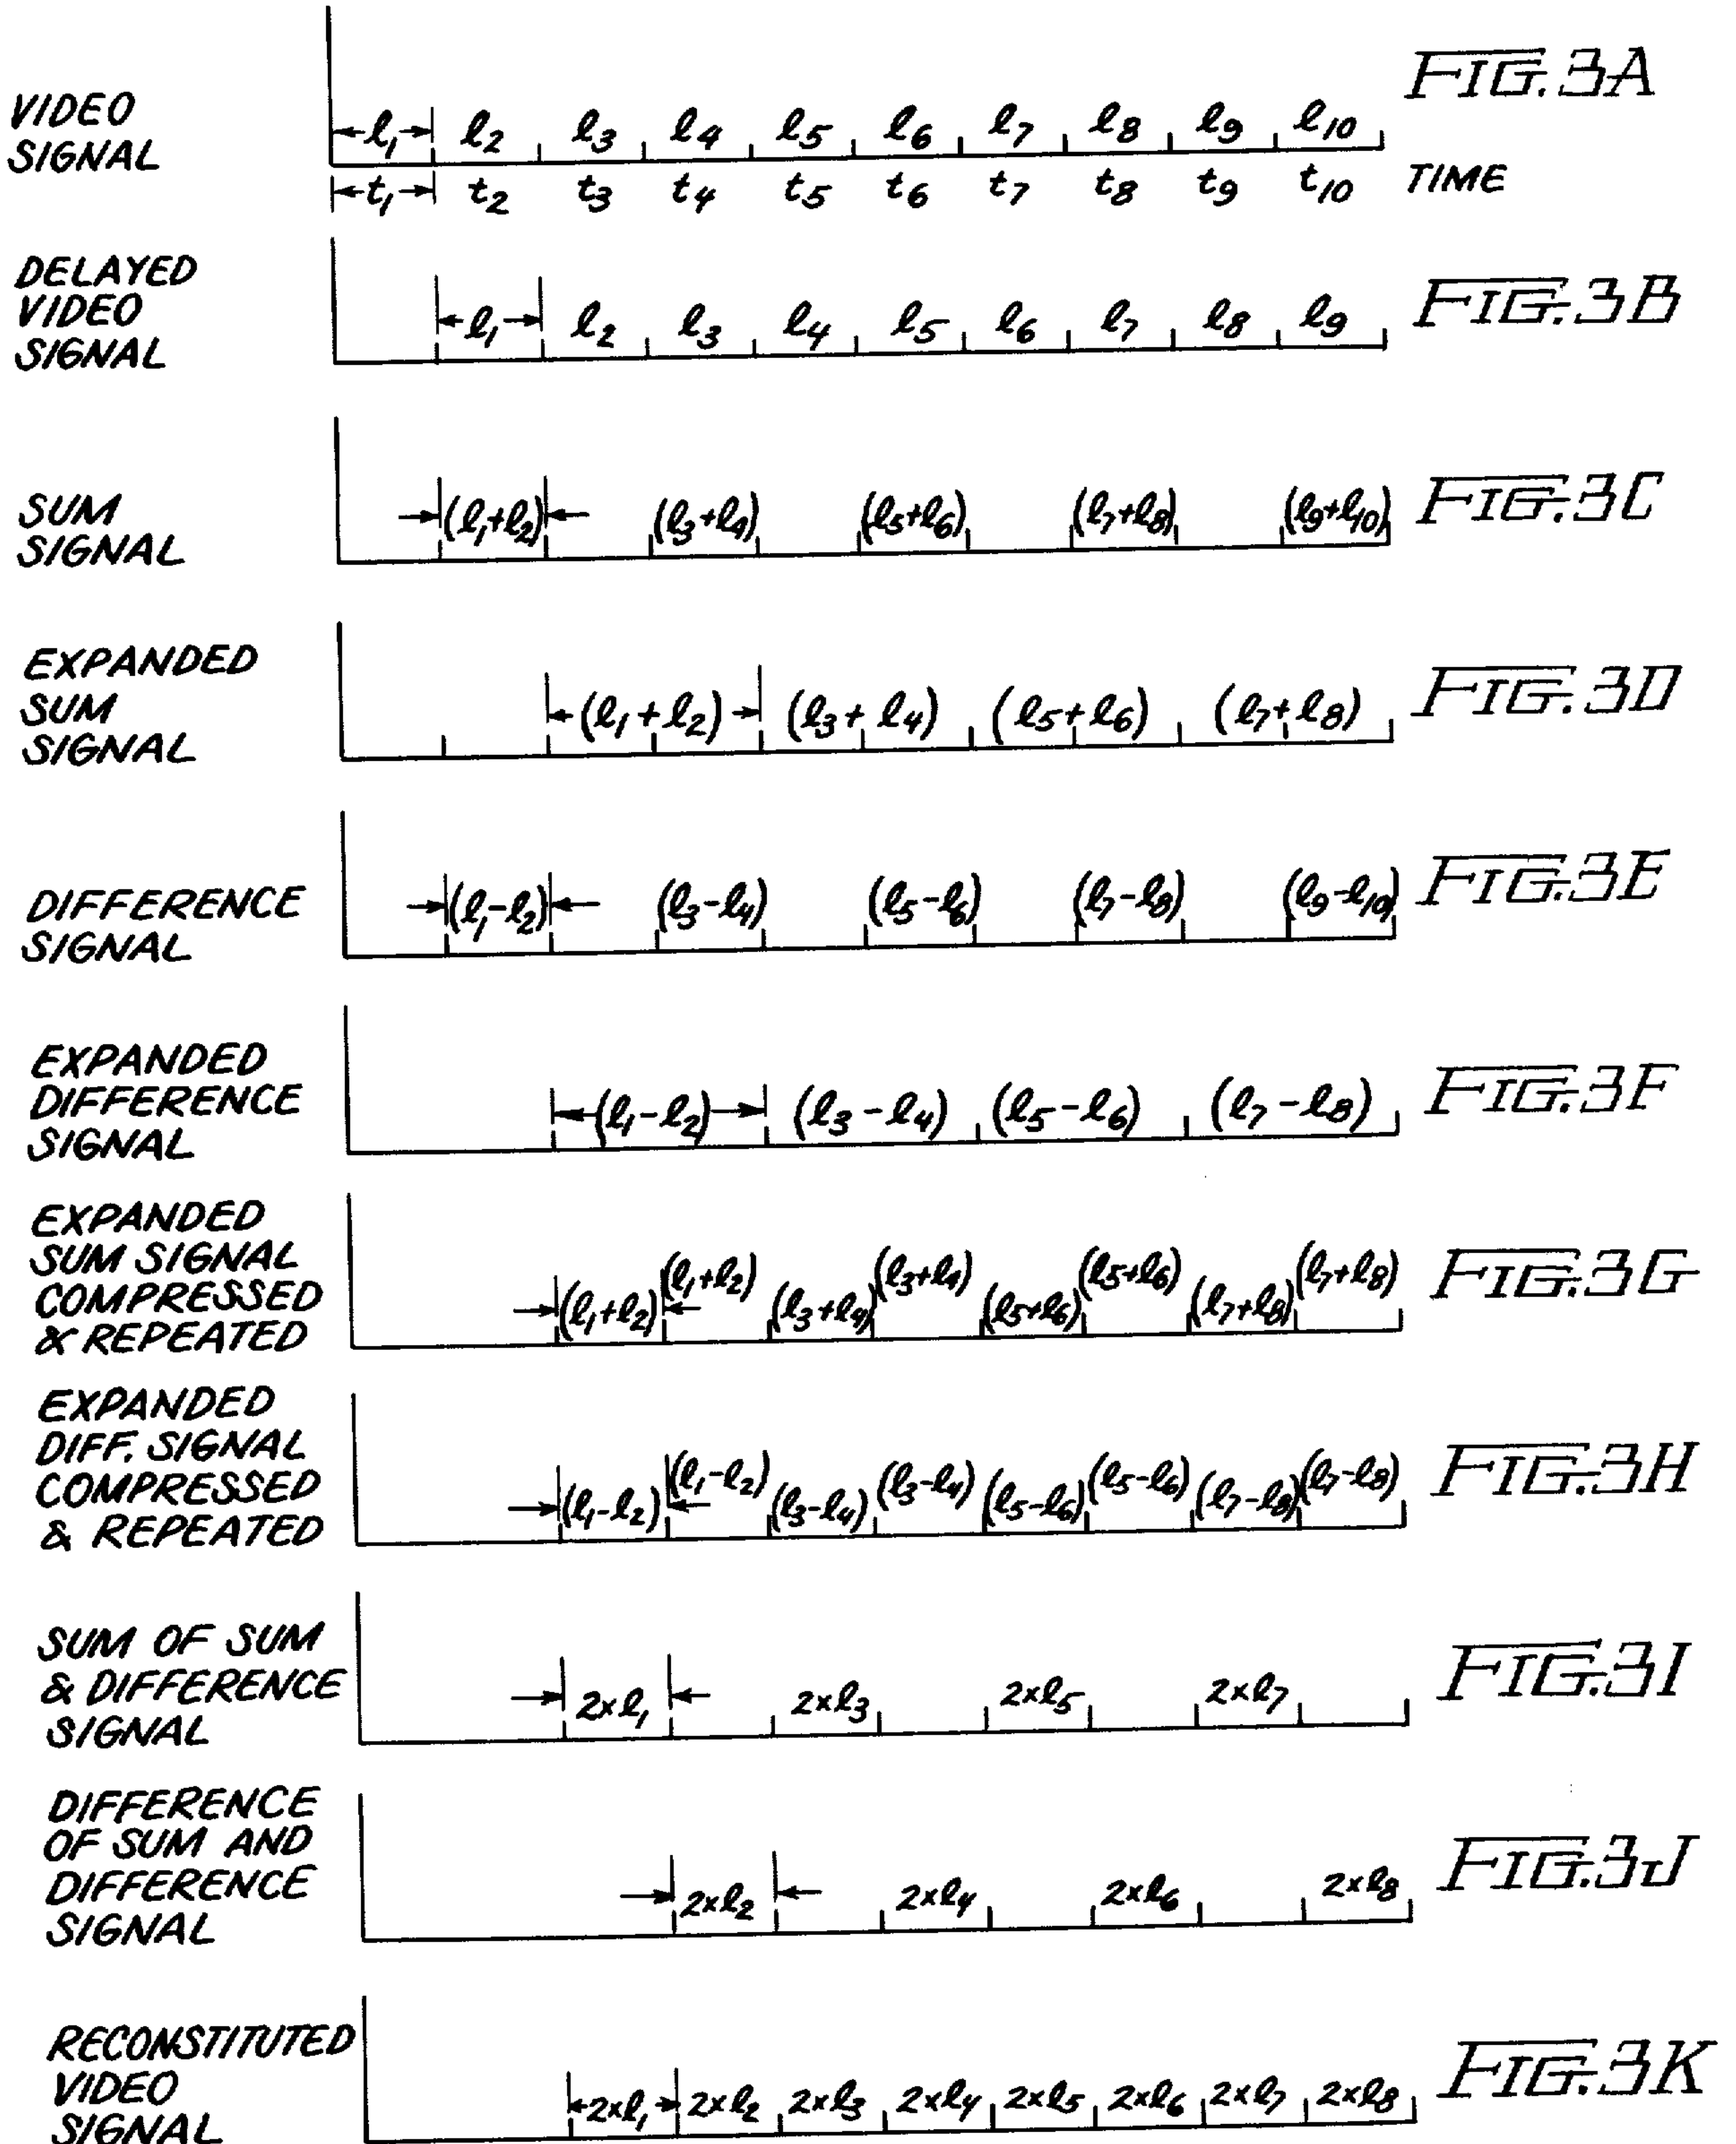 FIG. 3A
VIDEO
SIGNAL
l1 l2 l3 l4 l5 l6 l7 l8 l9 l10
t1 t2 t3 t4 t5 t6 t7 t8 t9 t10 TIME
DELAYED
VIDEO
SIGNAL
l1 l2 l3 l4 l5 l6 l7 l8 l9
FIG. 3B
SUM
SIGNAL
(l1+l2) (l3+l4) (l5+l6) (l7+l8) (l9+l10)
FIG. 3C
EXPANDED
SUM
SIGNAL
(l1+l2) (l3+l4) (l5+l6) (l7+l8)
FIG. 3D
DIFFERENCE
SIGNAL
(l1-l2) (l3-l4) (l5-l6) (l7-l8) (l9-l10)
FIG. 3E
EXPANDED
DIFFERENCE
SIGNAL
(l1-l2) (l3-l4) (l5-l6) (l7-l8)
FIG. 3F
EXPANDED
SUM SIGNAL
COMPRESSED
& REPEATED
(l1+l2) (l1+l2) (l3+l4) (l3+l4) (l5+l6) (l5+l6) (l7+l8) (l7+l8)
FIG. 3G
EXPANDED
DIFF. SIGNAL
COMPRESSED
& REPEATED
(l1-l2) (l1-l2) (l3-l4) (l3-l4) (l5-l6) (l5-l6) (l7-l8) (l7-l8)
FIG. 3H
SUM OF SUM
& DIFFERENCE
SIGNAL
2xl1 2xl3 2xl5 2xl7
FIG. 3I
DIFFERENCE
OF SUM AND
DIFFERENCE
SIGNAL
2xl2 2xl4 2xl6 2xl8
FIG. 3J
RECONSTITUTED
VIDEO
SIGNAL
2xl1 2xl2 2xl3 2xl4 2xl5 2xl6 2xl7 2xl8
FIG. 3K